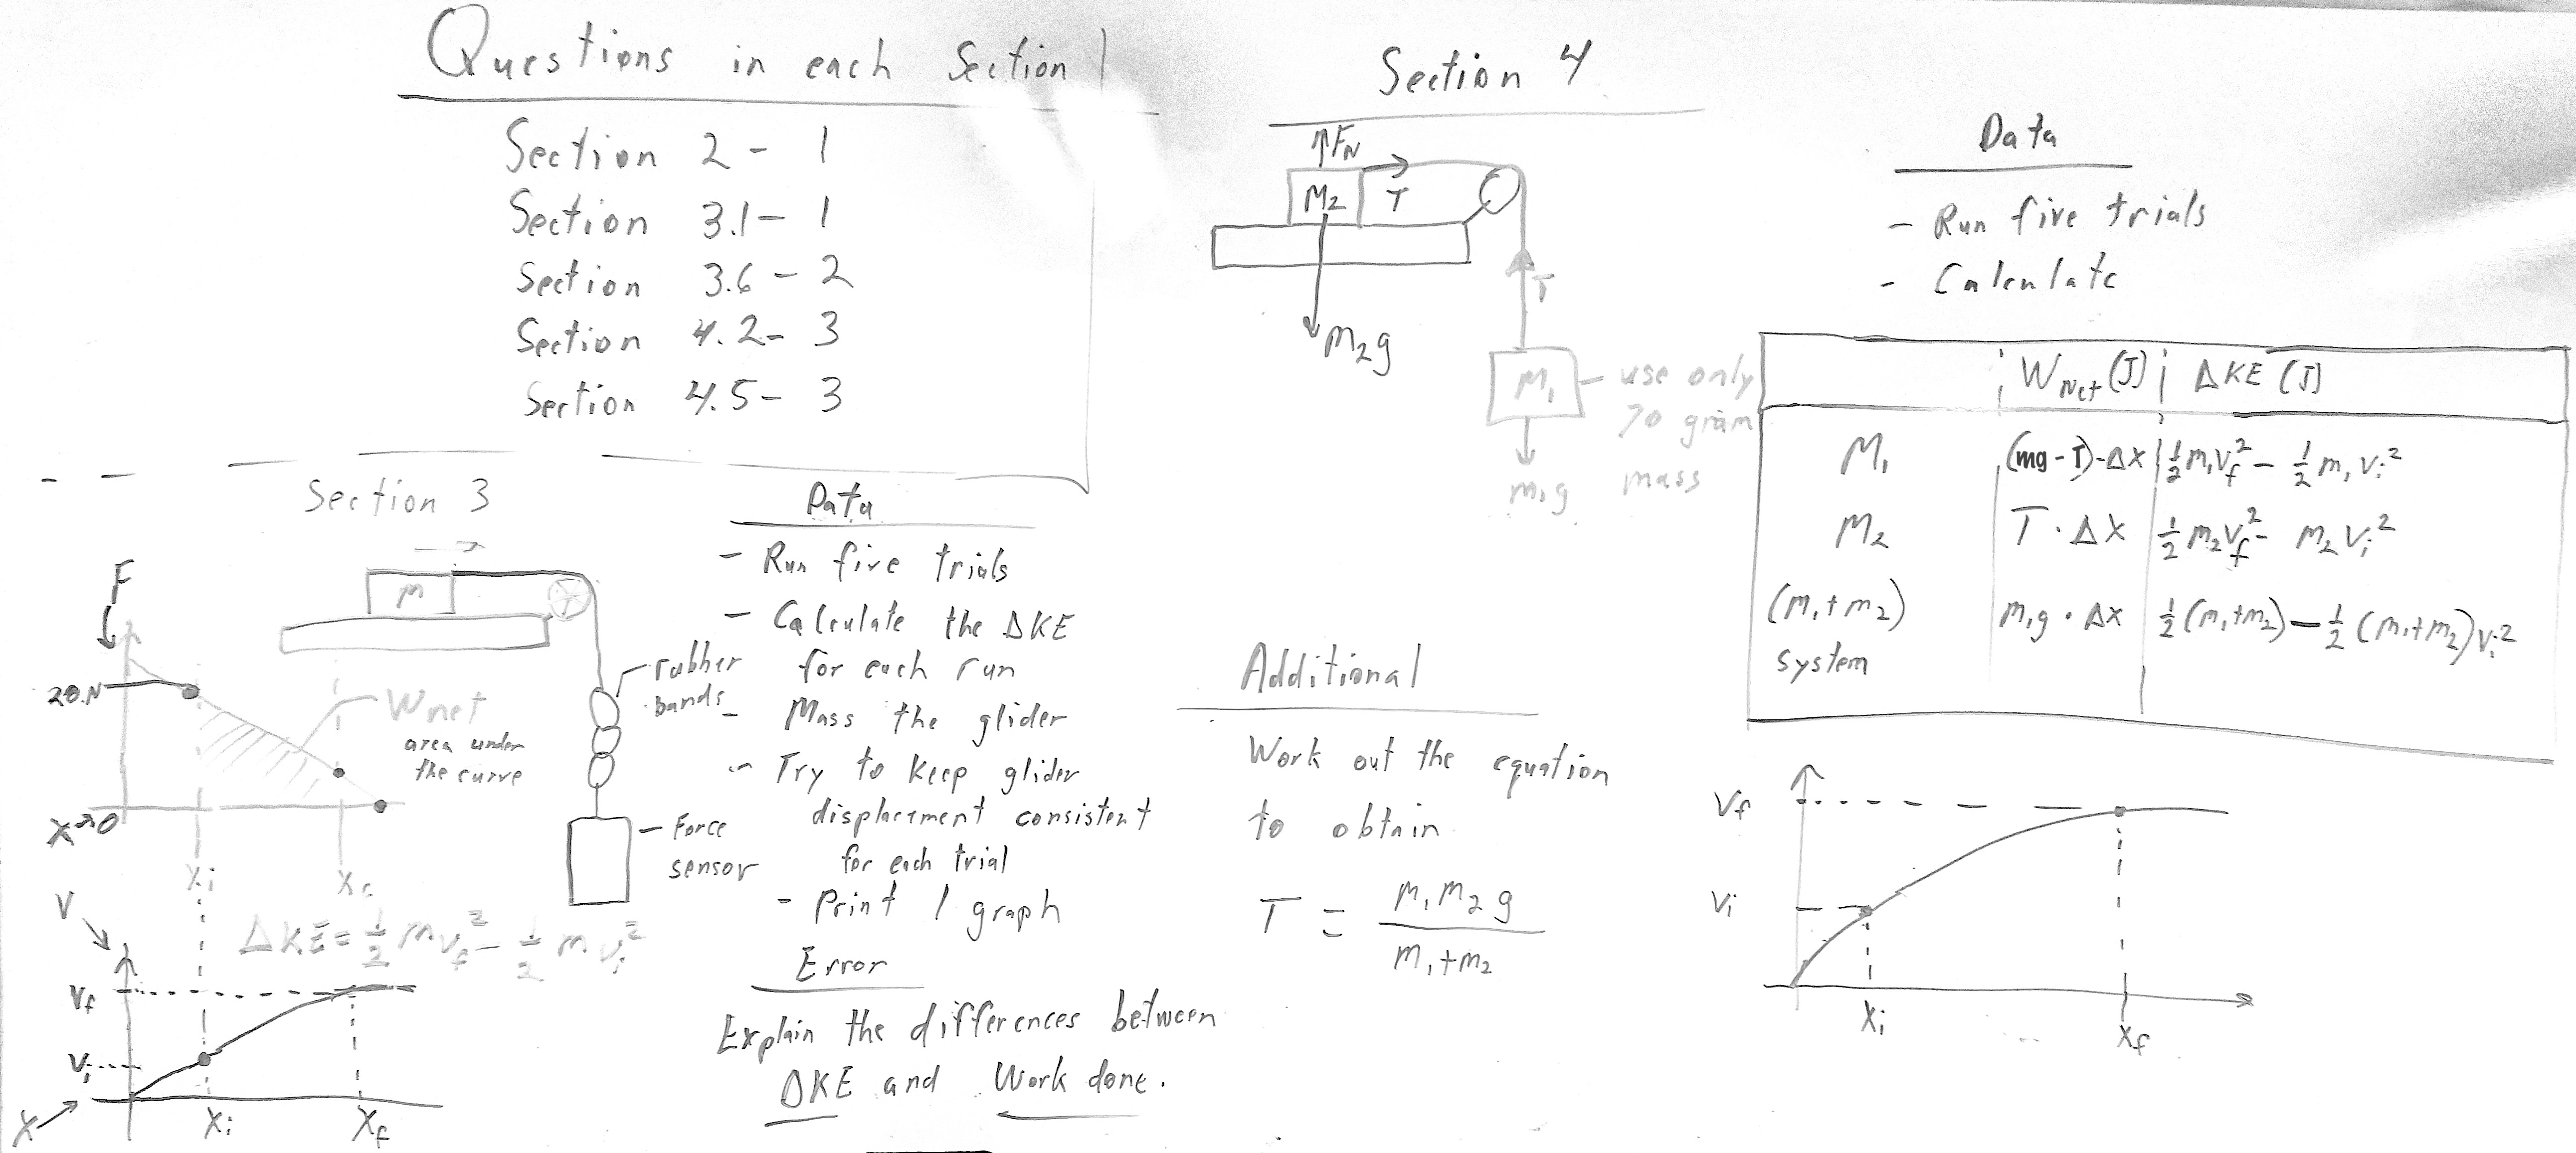 Questions in each Section
Section 2 - 1
Section 3.1 - 1
Section 3.6 - 2
Section 4.2 - 3
Section 4.5 - 3
Section 3
F
M
20.N
Wnet
area under
the curve
x=0
xi
rubber
bands
Force
sensor
ΔKE = ½ m vf² - ½ m vi²
V
Vf
Vi
X
Xi
Xf
Data
- Run five trials
- Calculate the ΔKE
for each run
- Mass the glider
- Try to keep glider
displacement consistent
for each trial
- Print 1 graph
Error
Explain the differences between
ΔKE and Work done.
Section 4
↑FN
M2
T
m2g
T
M1 - use only
70 gram
mass
m1g
Additional
Work out the equation
to obtain
T = m1m2g / m1+m2
Data
- Run five trials
- Calculate
WNet (J) ΔKE (J)
M1 (mg - T)·ΔX ½m1vf² - ½m1vi²
M2 T·ΔX ½m2vf² - m2vi²
(m1+m2) m1g·ΔX ½(m1+m2) - ½(m1+m2)vi²
system
Vf
Vi
Xi
Xf